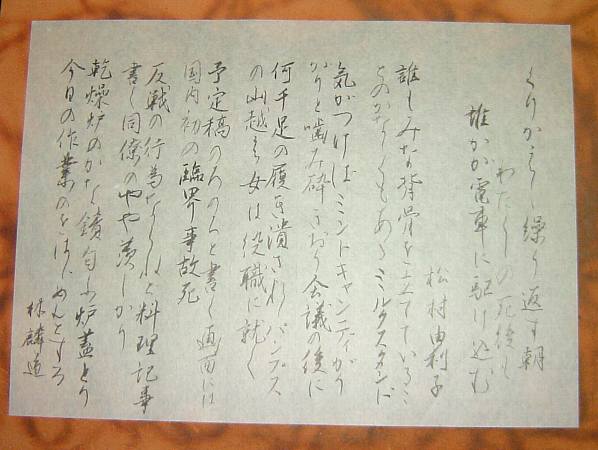 くりかえし繰り返す朝
わたくしの死後も
誰かが電車に駆け込む
松村由利子
誰しもみな背骨を立てているこ
とのかなしくもあるミルクスタンド
気がつけばミントキャンディがり
がりと噛み砕きおり会議の後に
何千足の履き潰されしパンプス
の山越えて女は役職に就く
予定稿のろのろと書く画面には
国内初の臨界事故死
反戦の行為ならねど料理記事
書く同僚のやや羨しかり
乾燥炉のかなく錆匂ふ炉蓋とり
今日の作業のをはじめんとする
林麟道